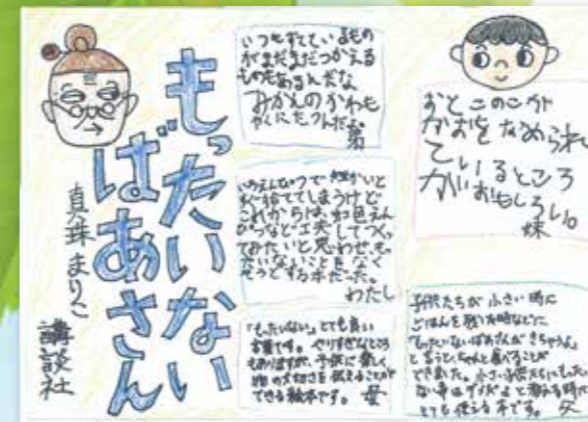 もったいない
ばあさん
真珠まりこ
講談社
いつもすてているもの
がまだまだつかえる
ものもあるんだな
みかんのかわも
やくにたつんだ。
弟
いろえんぴつで短かいと
私捨ててしまうけど
これからは、虹色えん
ぴつなど工夫してつく
てみたいと思わせ、も
たいないことをなく
そうとする本だった。
わたし
「もったいない」とても良い
言葉です。やりすぎなところ
もありますが、子供に楽しく
物の大切さを伝えることが
できる絵本です。 母
おとこのこが
かおをなめられ
ているところ
がおもしろい。
妹
子供たちが小さい時に
ごはんを残した時などに
「もったいないばあさんがきちゃうよ」
と言うと、ちゃんと食べることが
できました。小さい子供たちにもった
ない事はダメだよと教える時に
とても使える本です。 父